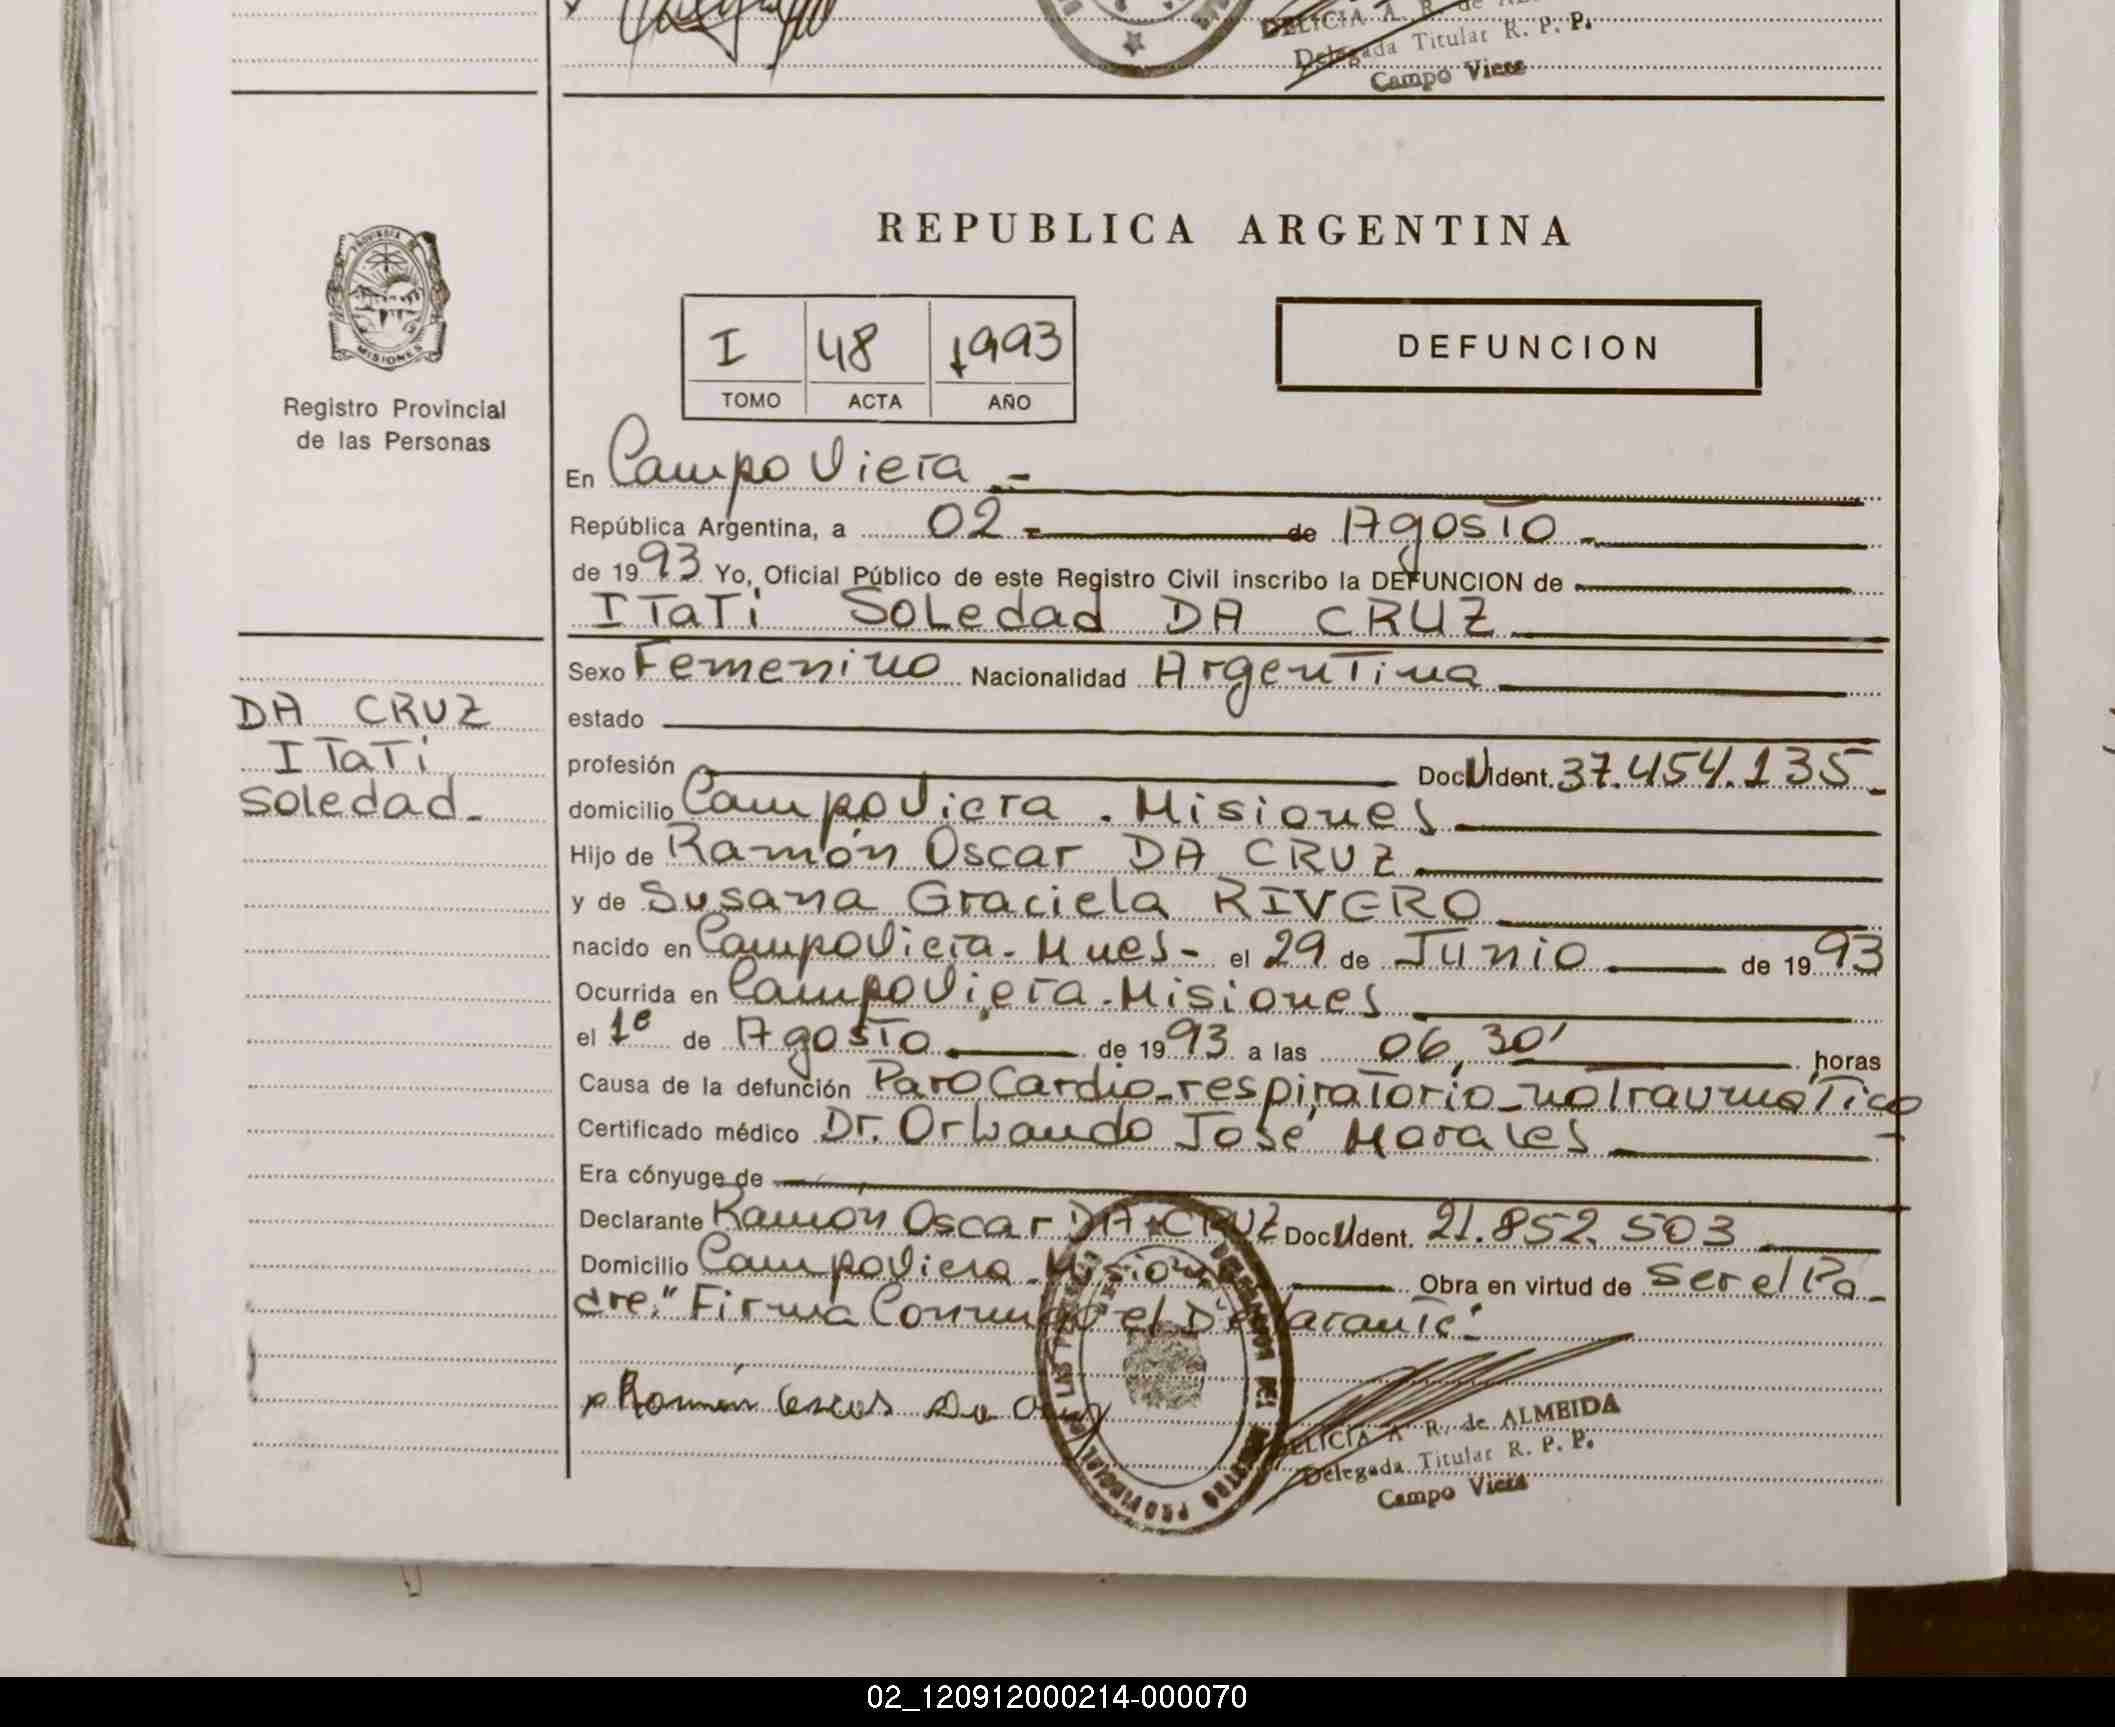 DELICIA A. R. de
Delegada Titular R. P. P.
Campo Viera
PROVINCIA DE
MISIONES
Registro Provincial
de las Personas
REPUBLICA ARGENTINA
I 48 1993
TOMO ACTA AÑO
DEFUNCION
En Campo Viera.-
República Argentina, a 02 - de Agosto.-
de 1993. Yo, Oficial Público de este Registro Civil inscribo la DEFUNCION de
ITaTi Soledad DA CRUZ
DA CRUZ
ITaTi
Soledad.-
Sexo Femenino Nacionalidad Argentina
estado
profesión Doc U Ident. 37.454.135.-
domicilio Campo Viera. Misiones
Hijo de Ramón Oscar DA CRUZ
y de Susana Graciela RIVERO
nacido en Campo Viera. Mnes- el 29 de Junio de 1993
Ocurrida en Campo Viera. Misiones
el 1º de Agosto de 1993 a las 06,30' horas
Causa de la defunción Paro Cardio-respiratorio-no Traumático
Certificado médico Dr. Orlando José Morales -
Era cónyuge de
Declarante Ramón Oscar DA CRUZ Doc U Ident. 21.852.503
Domicilio Campo Viera. Misiones Obra en virtud de ser el Pa-
dre." Firma Conmigo el Declarante".
x Ramón Oscar Da Cruz
DELICIA A R. de ALMEIDA
Delegada Titular R. P. P.
Campo Viera
02_120912000214-000070